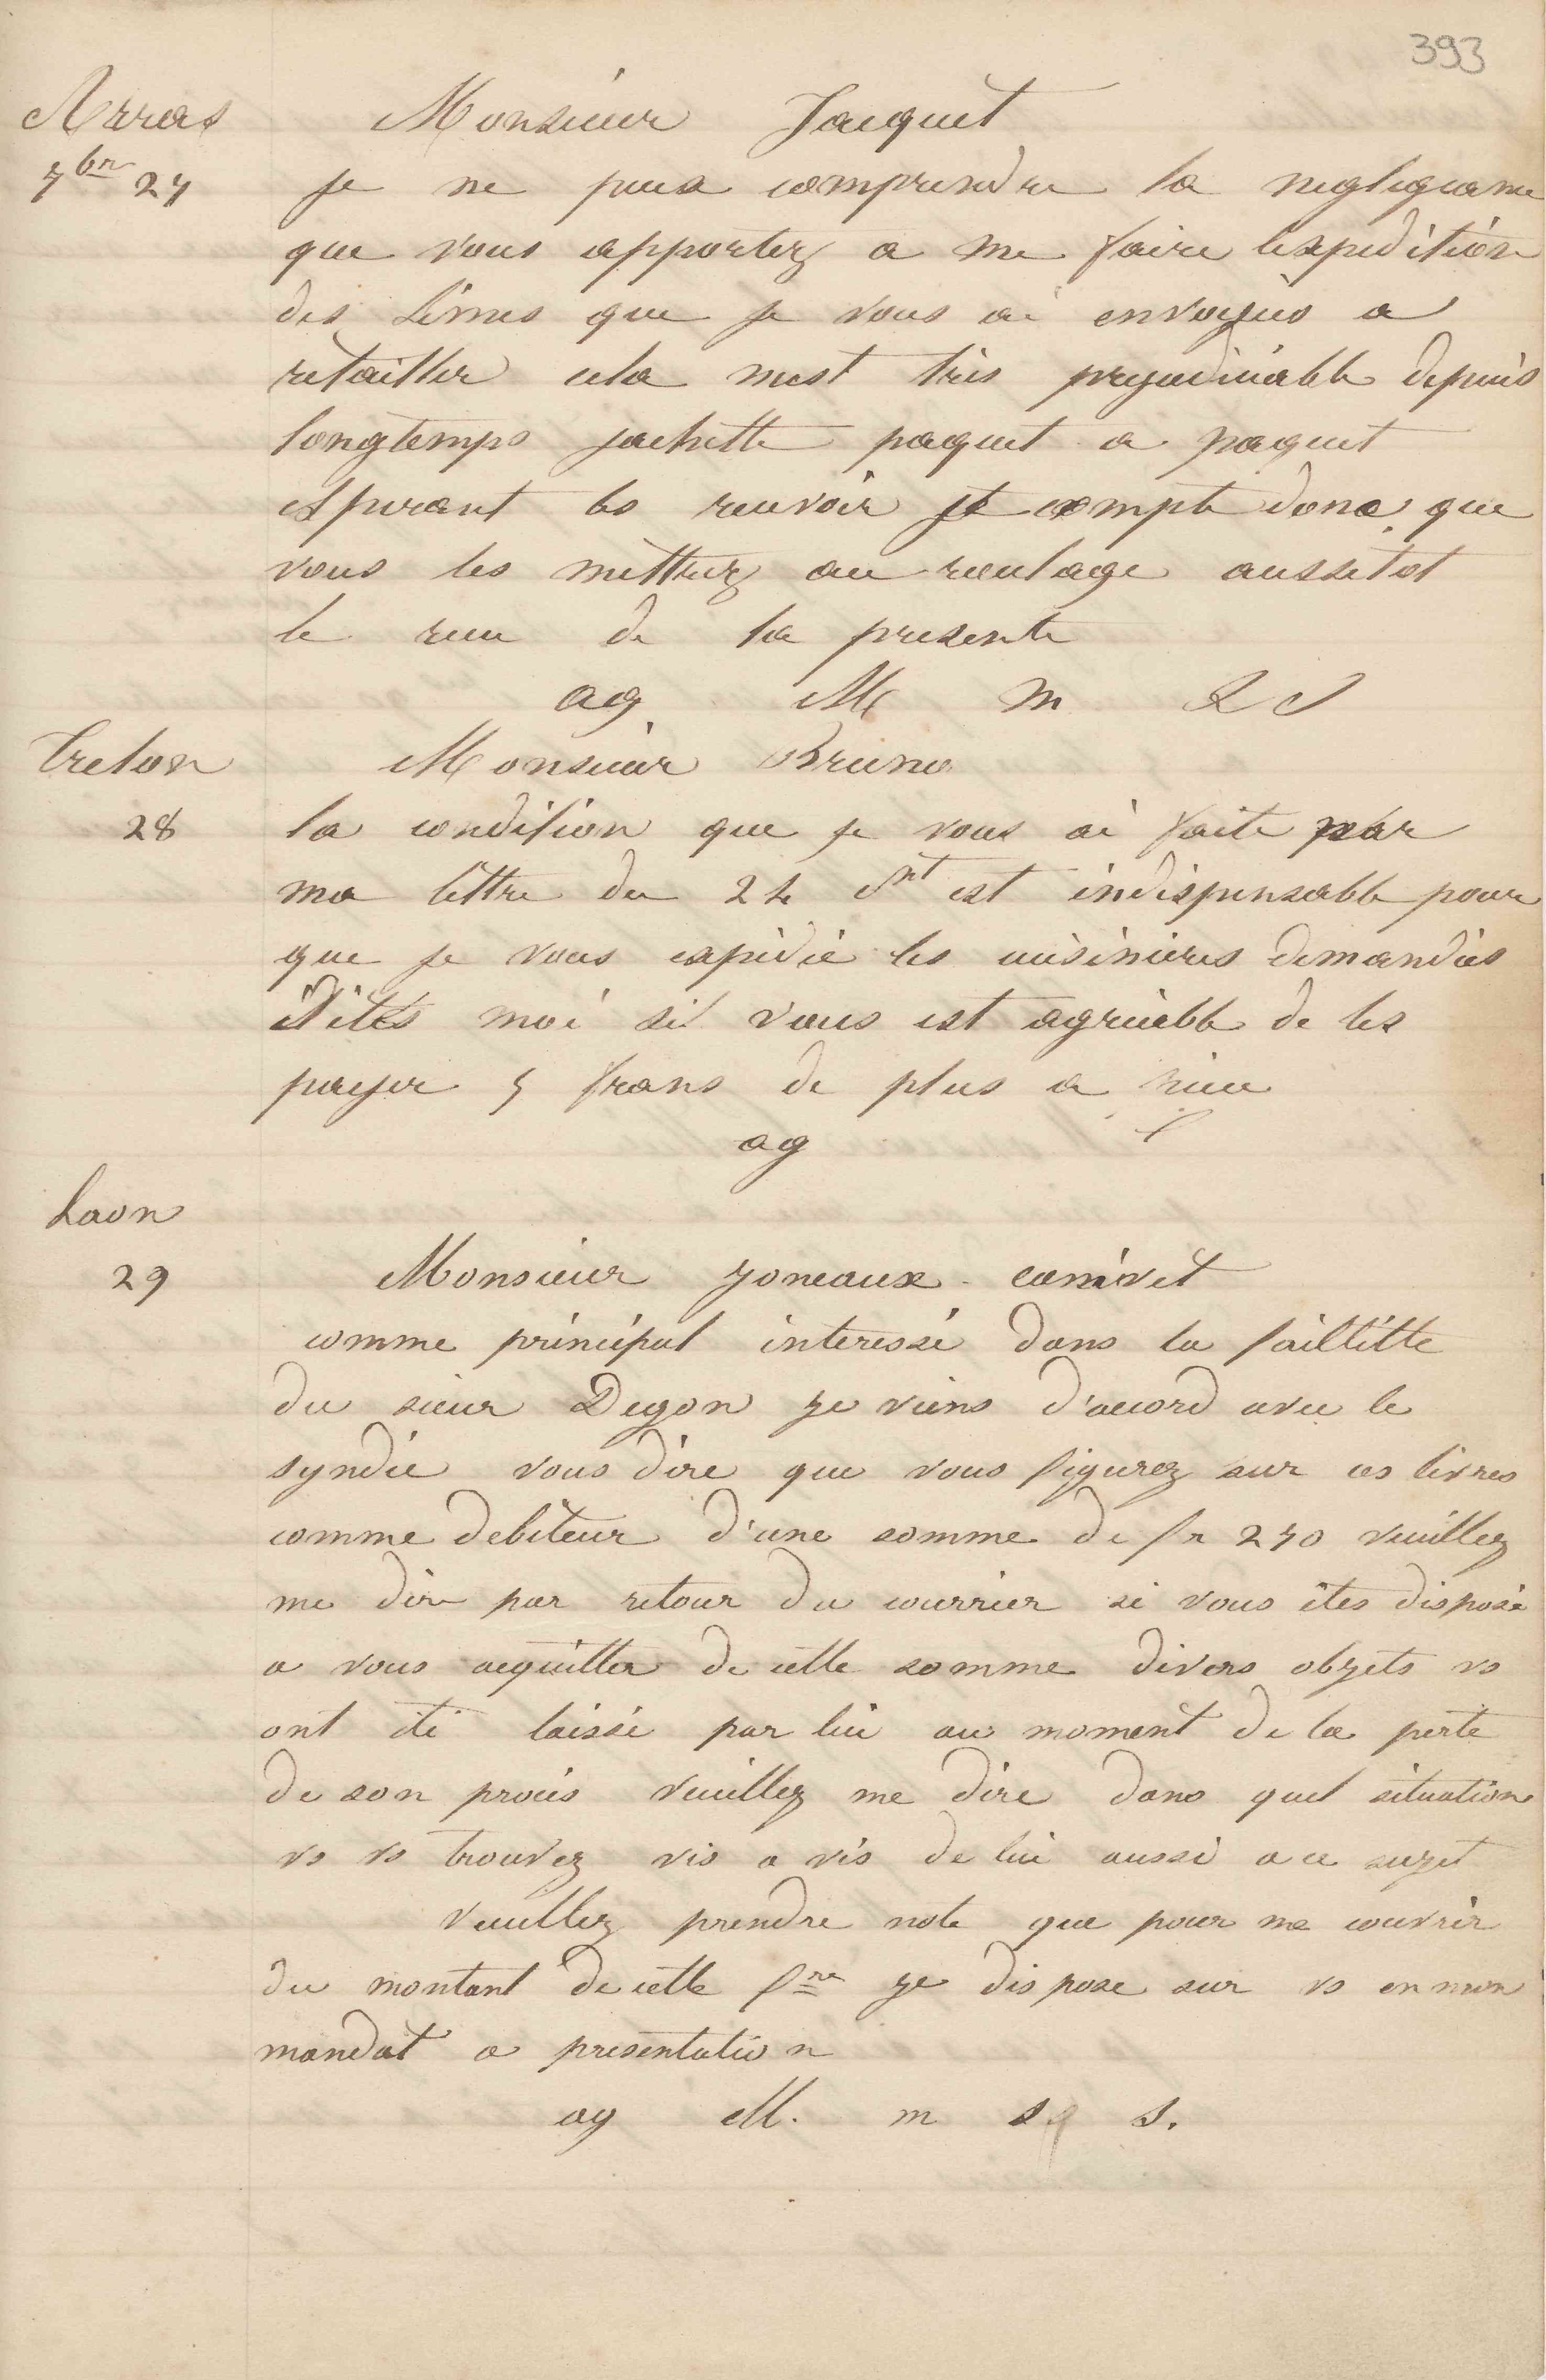 393
Arras
7bre 27
Monsieur Jacquet
je ne peux comprendre la negligeance
que vous apportez a me faire lexpedition
des Limes que je vous ai envoyés a
retailler cela mest très prejudiciable depuis
longtemps jachette paquet a paquet
esperant les recevoir je compte donc que
vous les mettrez au roulage aussitot
le recu de la presente
ag M m S S
Trelon
28
Monsieur Bruno
la condition que je vous ai faite par
ma lettre du 24 nt est indispensable pour
que je vous expédie les cuisinieres demandées
Dites moi sil vous est agréable de les
payer 5 frans de plus a
ag
Laon
29
Monsieur Joneaux canivet
comme principal interessé dans la faillitte
du sieur Degon je viens d'accord avec le
syndic vous dire que vous figurez sur ces livres
comme debiteur d'une somme de fr 270 veuillez
me dire par retour du courrier si vous étes disposé
a vous acquitter de cette somme divers objets vs
ont été laissé par lui au moment de la perte
de son procés veuillez me dire dans quel situation
vs vs trouvez vis a vis de lui aussi a ce sujet
veuillez prendre note que pour me couvrir
du montant de cette fre je dispose sur vs en mon
mandat a presentation
ag M. m s s.